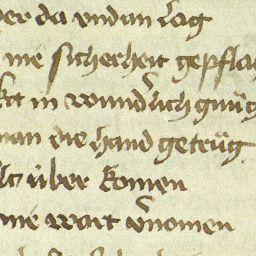 er da vndan lag
nie sicherheit gepflag
in wund'lich gnüg
man die hand getrüg
über komen
nie wart v'nomen